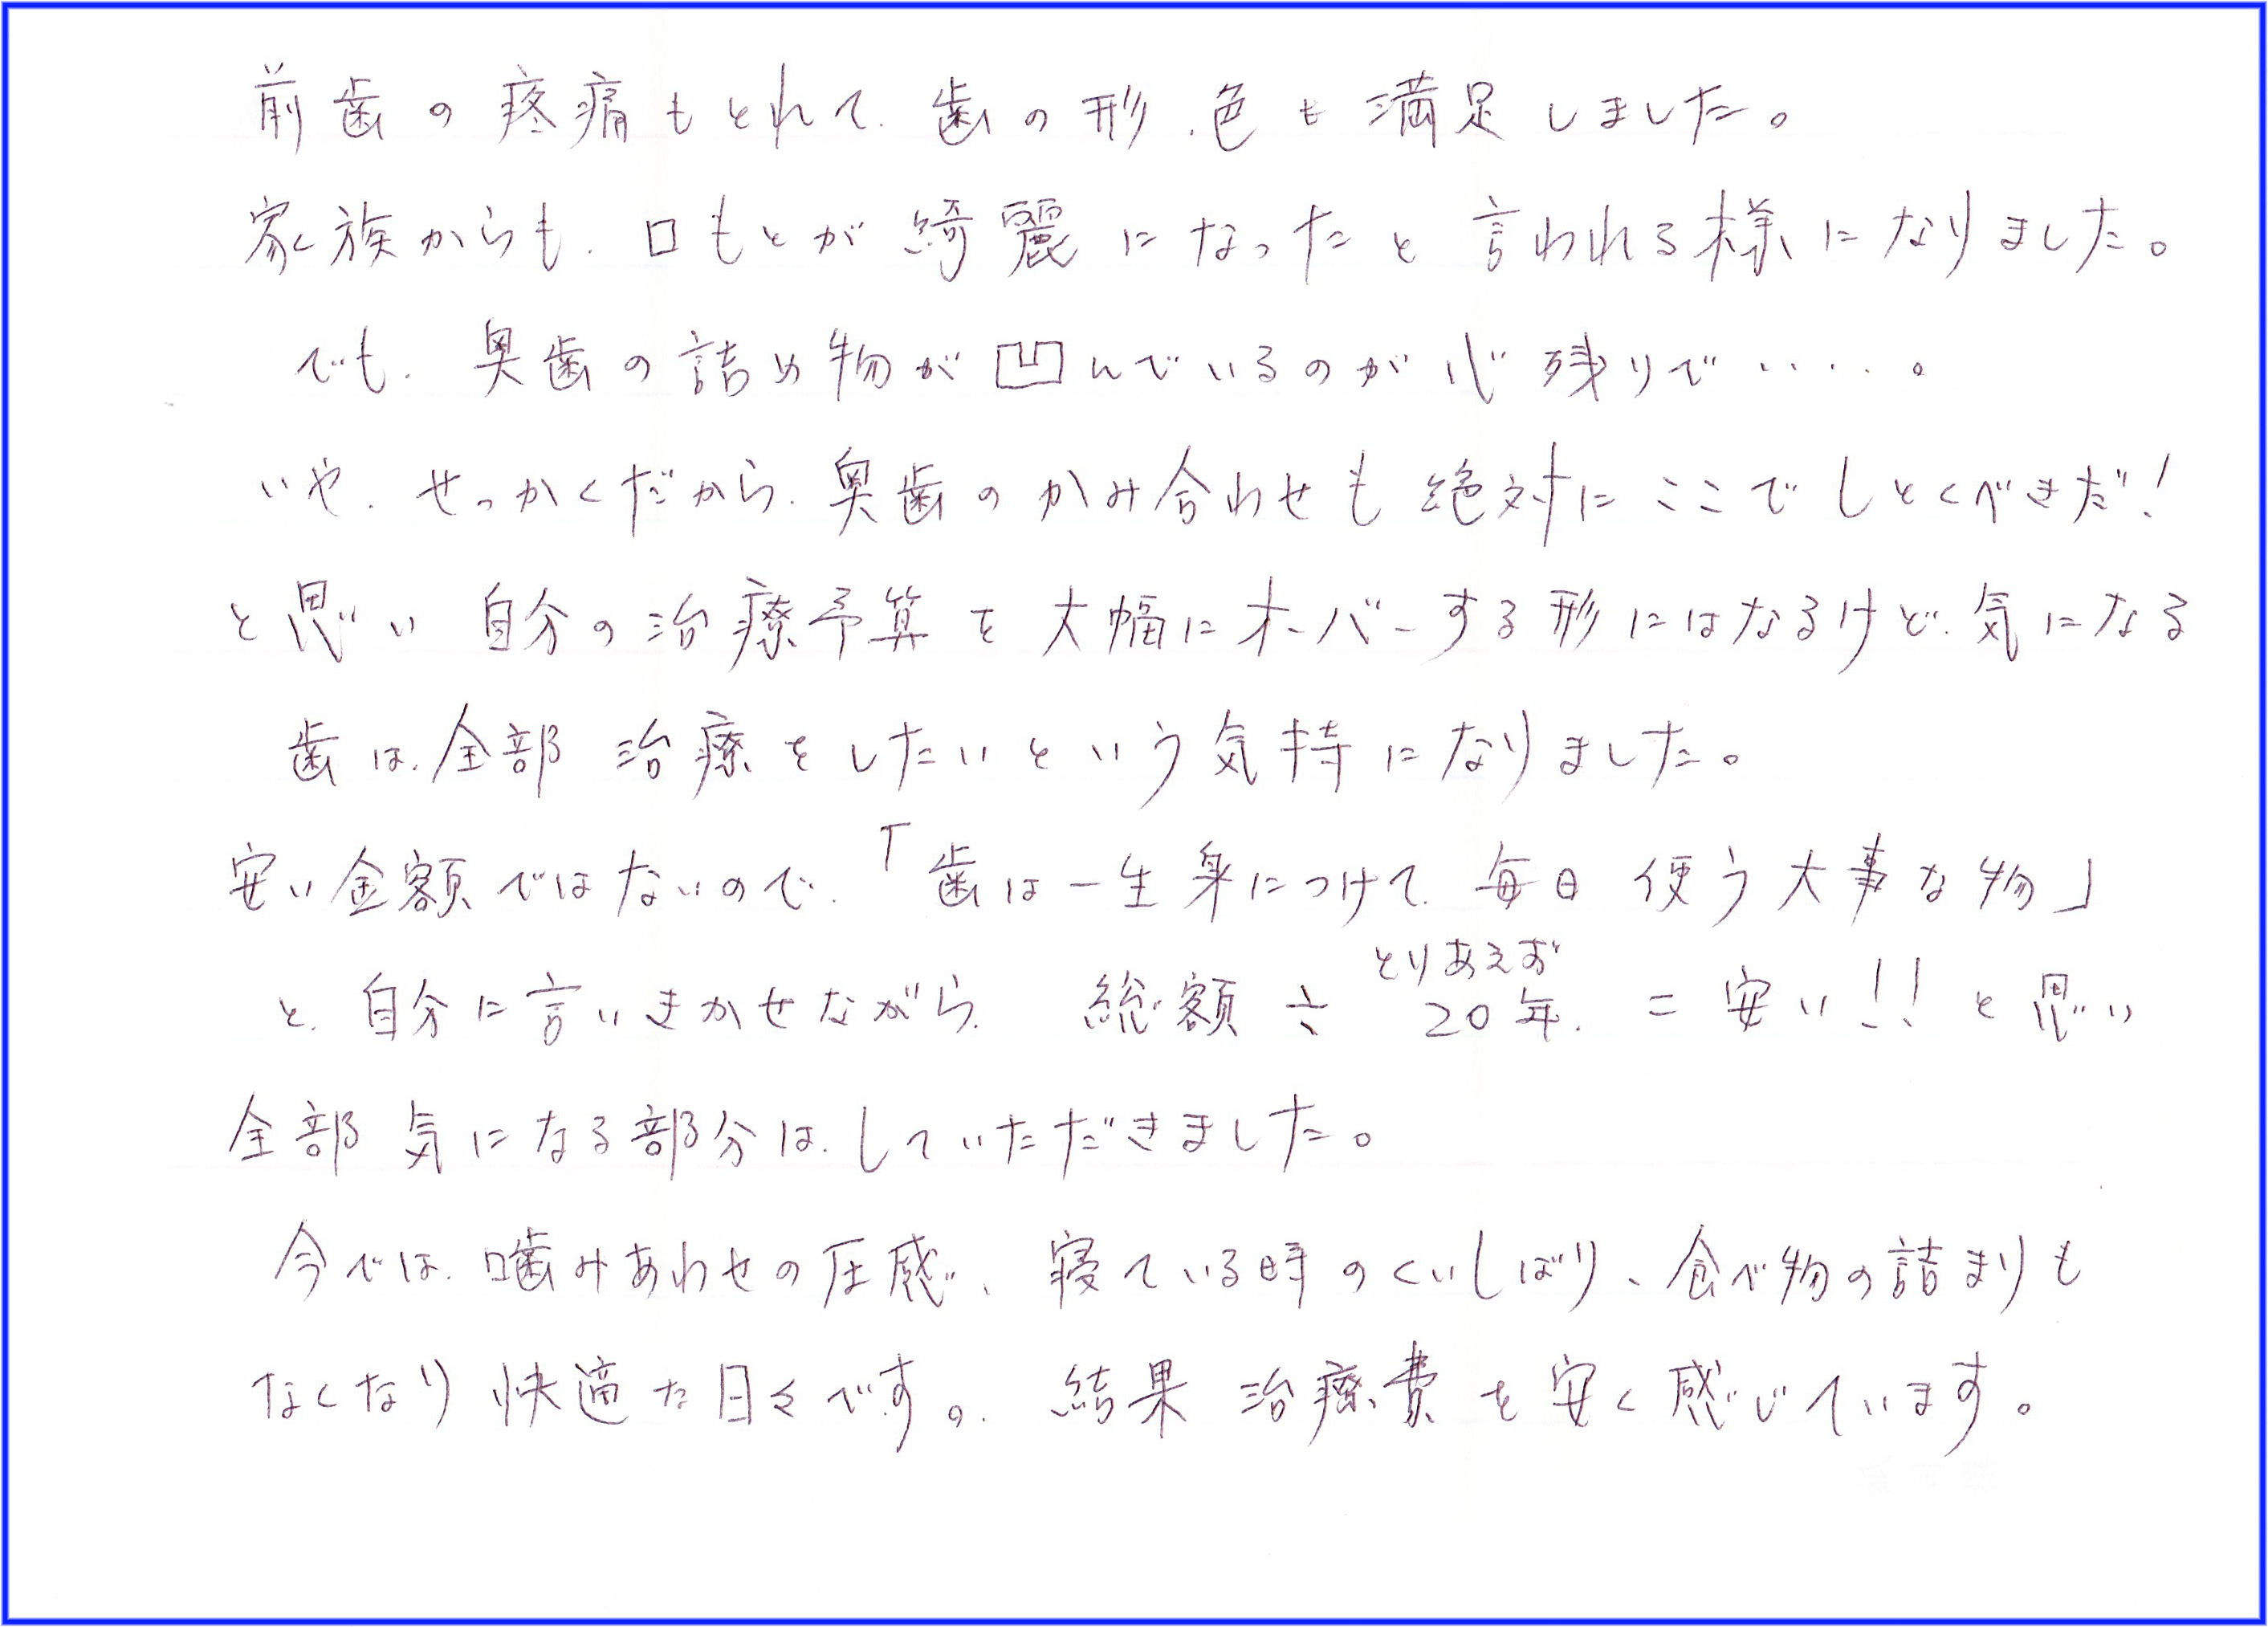 前歯の疼痛もとれて、歯の形、色も満足しました。
家族からも、口もとが綺麗になったと言われる様になりました。
でも、奥歯の詰め物が凹んでいるのが心残りで・・・・・。
いや、せっかくだから、奥歯のかみ合わせも絶対にここでしとくべきだ！
と思い 自分の治療予算を大幅にオーバーする形にはなるけど、気になる
歯は、全部 治療をしたいという気持になりました。
安い金額ではないので、「歯は一生身につけて、毎日 使う大事な物」
とりあえず
と、自分に言いきかせながら、総額 ÷ 20年、= 安い！！ と思い
全部 気になる部分は、していただきました。
今では、噛みあわせの圧感、寝ている時のくいしばり、食べ物の詰まりも
なくなり 快適な日々です。結果 治療費を安く感じています。